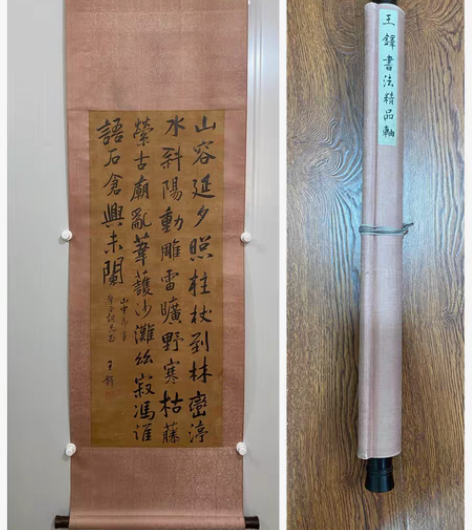 山容延夕照柱杖到林巒渟
水斜陽動雕雷曠野寒枯藤
縈古廟亂葦護沙灘絲寂馮誰
語石倉興未闌
山中
王鐸
王鐸書法精品軸